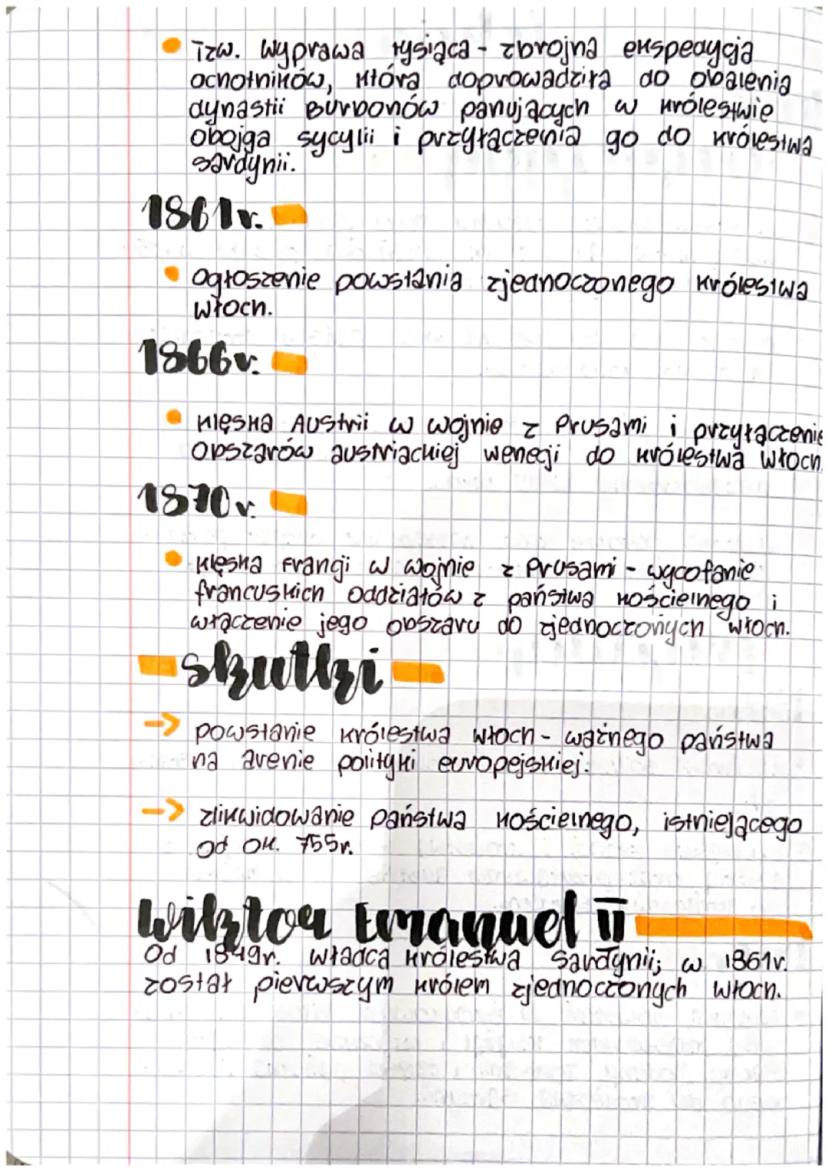 Tzw. wyprawa tysiąca - zbrojna ekspedycja
ochotników, która doprowadziła do obalenia
dynastii Burbonów panujących w królestwie
obojga sycylii i przyłączenia go do królestwa
sardynii.
1861r.
ogłoszenie powstania zjednoczonego królestwa
włoch.
1866r.
klęska Austrii w wojnie z Prusami i przyłączenie
obszarów austriackiej wenecji do królestwa włoch
1870r.
klęska Francji w wojnie z Prusami - wycofanie
francuskich oddziałów z państwa kościelnego i
włączenie jego obszaru do zjednoczonych włoch.
skutki
→ powstanie królestwa włoch - ważnego państwa
na arenie polityki europejskiej.
→ zlikwidowanie państwa kościelnego, istniejącego
od ok. 755r.
Wiktor Emanuel II
Od 1849r. władca królestwa Sardynii; w 1861r.
został pierwszym królem zjednoczonych włoch.